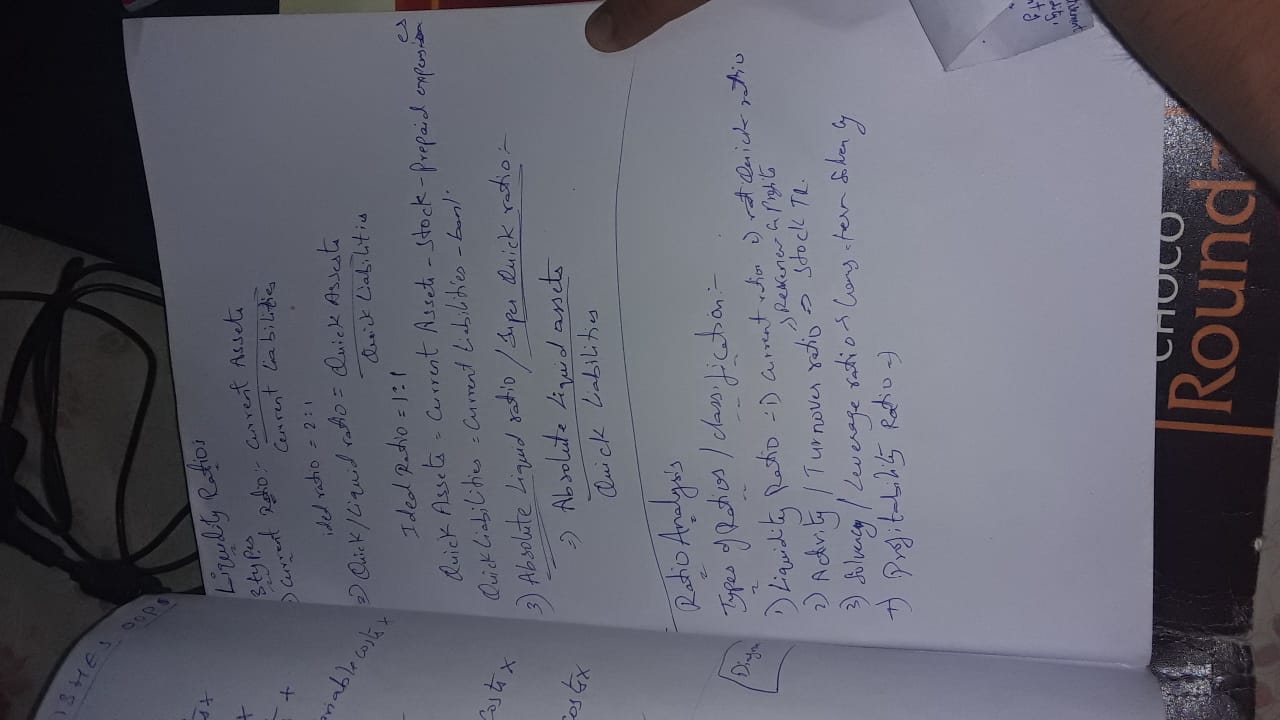 Liquidity Ratios
3 types
1) Current Ratio:- Current Assets
Current Liabilities
ideal ratio = 2:1
2) Quick/Liquid ratio = Quick Assests
Quick Liabilitis
Ideal Ratio = 1:1
Quick Assets = Current Assets - Stock - prepaid expenses
Quick Liabilities = Current Liabilities -
3) Absolute Liquid ratio / Super Quick ratio:-
=) Absolute Liquid assets
Quick Liabilities
Ratio Analysis
Types of Ratios / classification:-
1) Liquidity Ratio - 1) Current ratio 2) Quick ratio
2) Activity / Turnover ratio => Stock TR.
3) Solvency / Leverage ratio Long-term Solvency
4) Profitability Ratio =)
Costs x
Costs x
CHOCO
Round